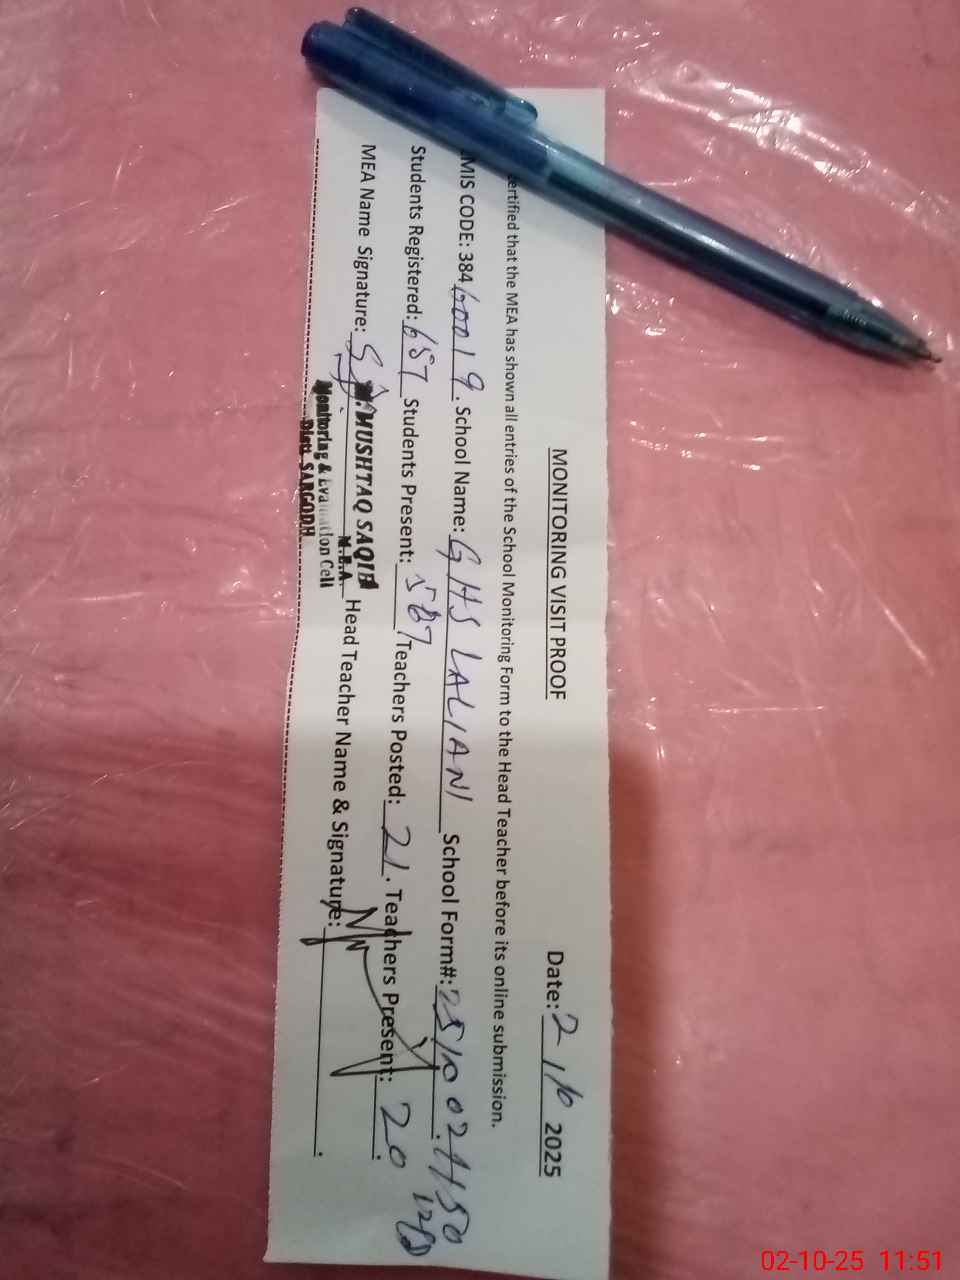 MONITORING VISIT PROOF Date: 2/10 2025
ertified that the MEA has shown all entries of the School Monitoring Form to the Head Teacher before its online submission.
MIS CODE: 384 60019. School Name: GHS LALIANI School Form#:
Students Registered: 657 Students Present: 587 Teachers Posted: 21. Teachers Present: 20
MEA Name Signature: MUSHTAQ SAQIB Head Teacher Name & Signature:
M.E.A.
Monitoring & Evaluation Cell
Distt. SARGODH
02-10-25 11:51